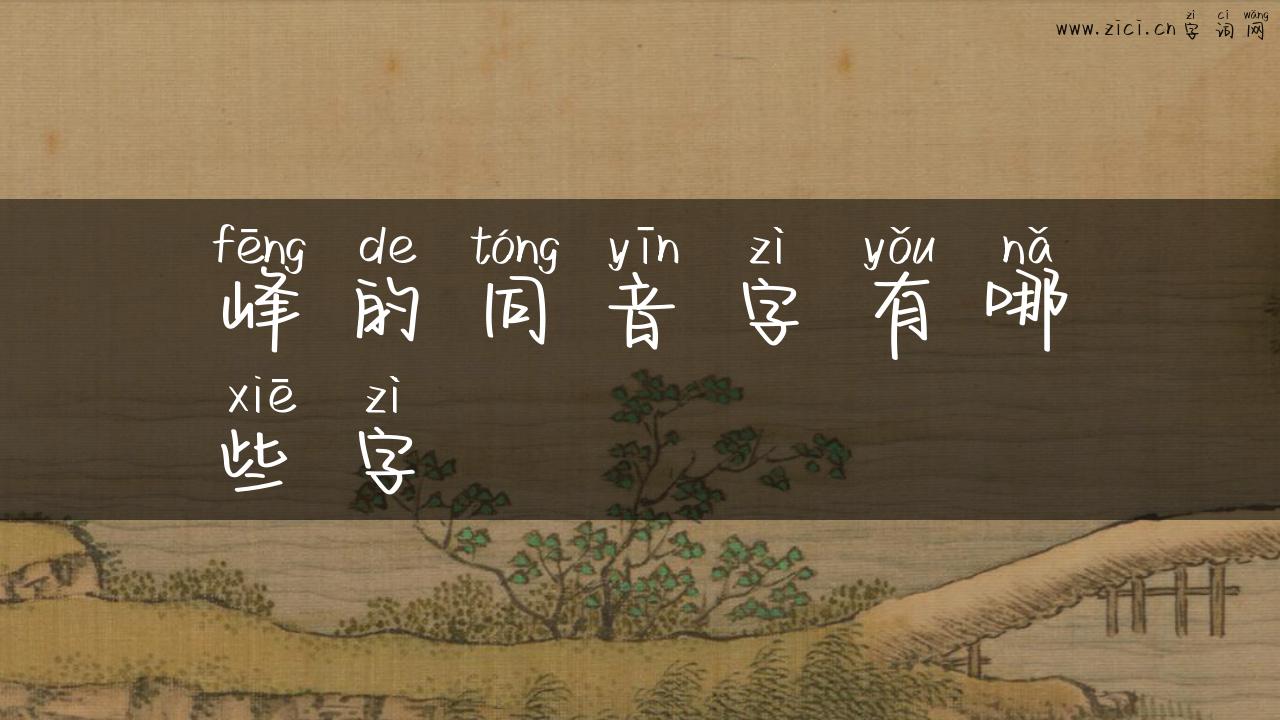 zì cí wǎng
www.zici.cn 字 词 网
fēng de tóng yīn zì yǒu nǎ
峰 的 同 音 字 有 哪
xiē zì
些 字